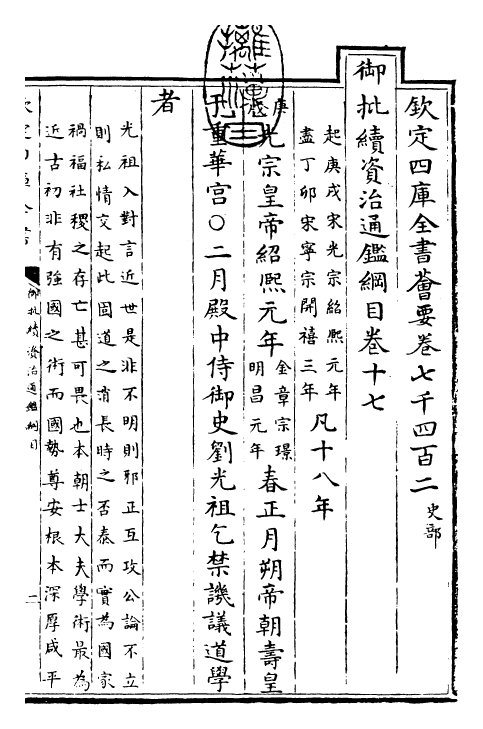 欽定四庫全書薈要卷七千四百二 史部
御批續資治通鑑綱目卷十七
起庚戌宋光宗紹熙元年
盡丁卯宋寧宗開禧三年
凡十八年
庚
光宗皇帝紹熙元年
金章宗璟
明昌元年
春正月朔帝朝壽皇
於重華宮○二月殿中侍御史劉光祖乞禁譏議道學
者
光祖入對言近世是非不明則邪正互攻公論不立
則私情交起此固道之消長時之否泰而實為國家
禍福社稷之存亡甚可畏也本朝士大夫學術最為
近古初非有強國之術而國勢尊安根本深厚咸平
御批續資治通鑑綱目